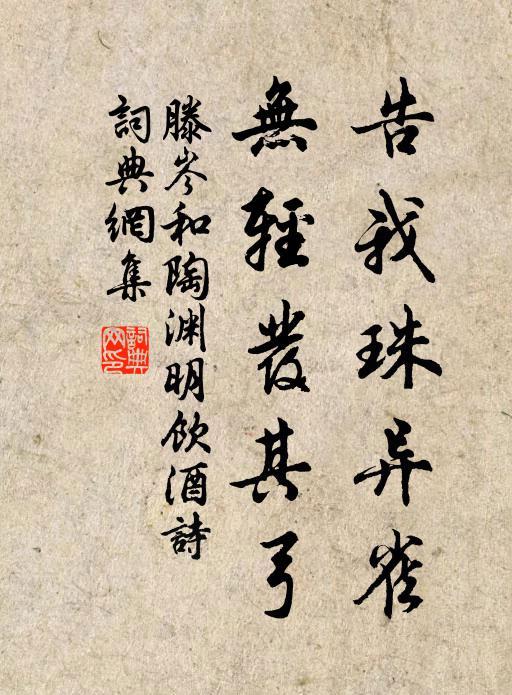 告我珠异雀
無輕發其弓
滕岑和陶渊明飲酒詩
詞典網集
詞典網印